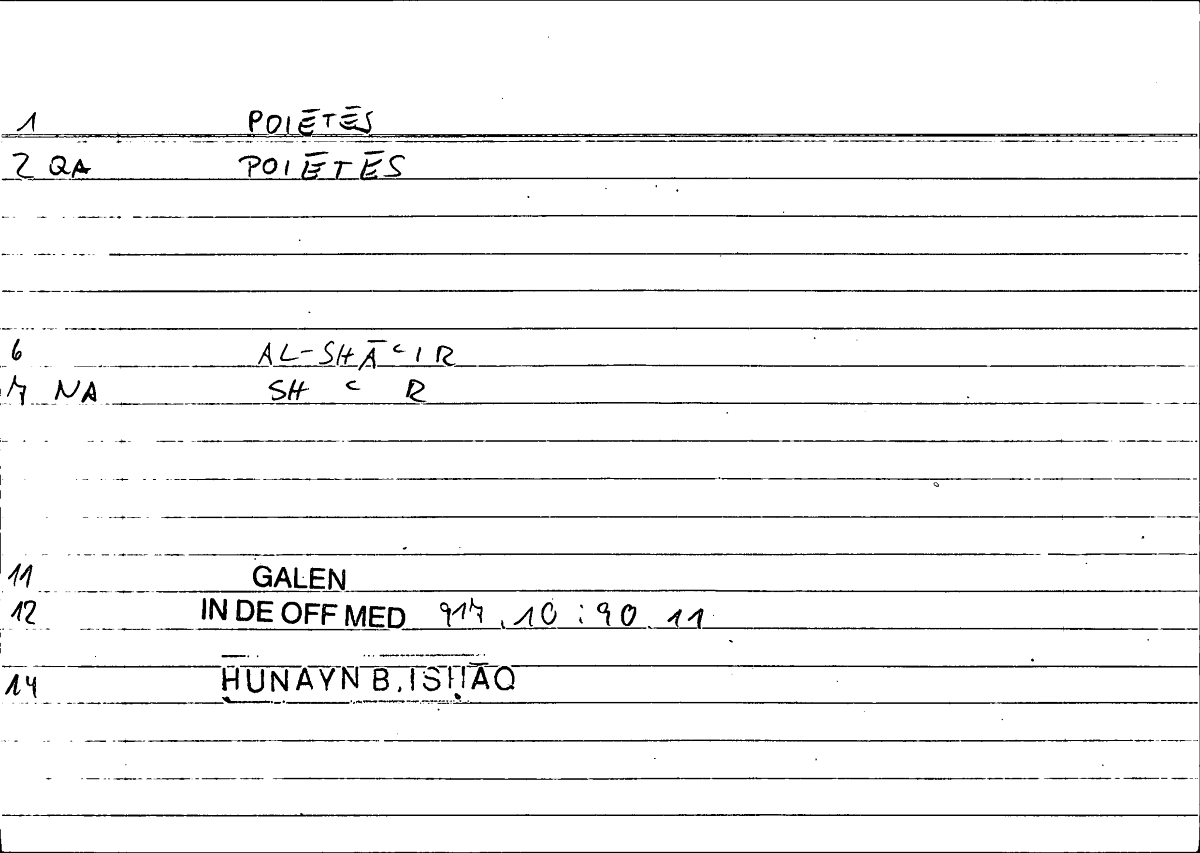 1 POIĒTĒS
2 QA POIĒTĒS
6 AL-SHĀʿIR
7 NA SH ʿ R
11 GALEN
12 IN DE OFF MED 917.10 : 90.11
14 ḤUNAYN B. ISḤĀQ